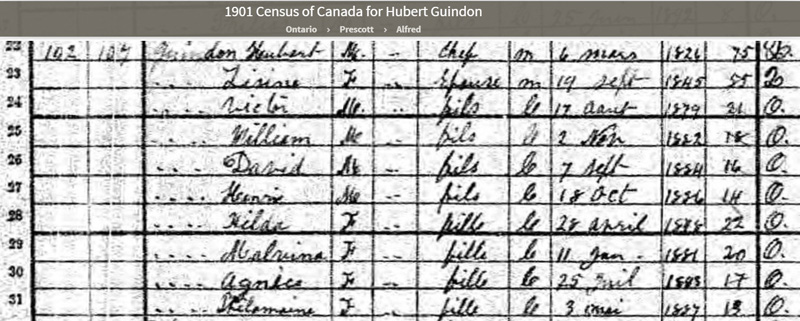 1901 Census of Canada for Hubert Guindon
Ontario › Prescott › Alfred
22 102 107 Guindon Heubert M. -- Chef m 6 mars 1826 75
23 .... Lisine F -- Epouse m 19 sept 1845 55
24 .... Victor M. -- fils C 17 aout 1879 21 O.
25 .... William M -- fils 2 Nov 1882 18 O.
26 .... David M. -- fils C 7 sept 1884 16 O.
27 .... M -- fils C 18 Oct 1886 14 O.
28 .... Hilda F -- fille C 28 april 22 O.
29 .... Malvina F -- fille C 11 Jan. 1881 20 O.
30 .... Agnès F -- fille C 25 1883 17 O.
31 .... Philomaine F. -- fille C 3 mai 1887 13 O.